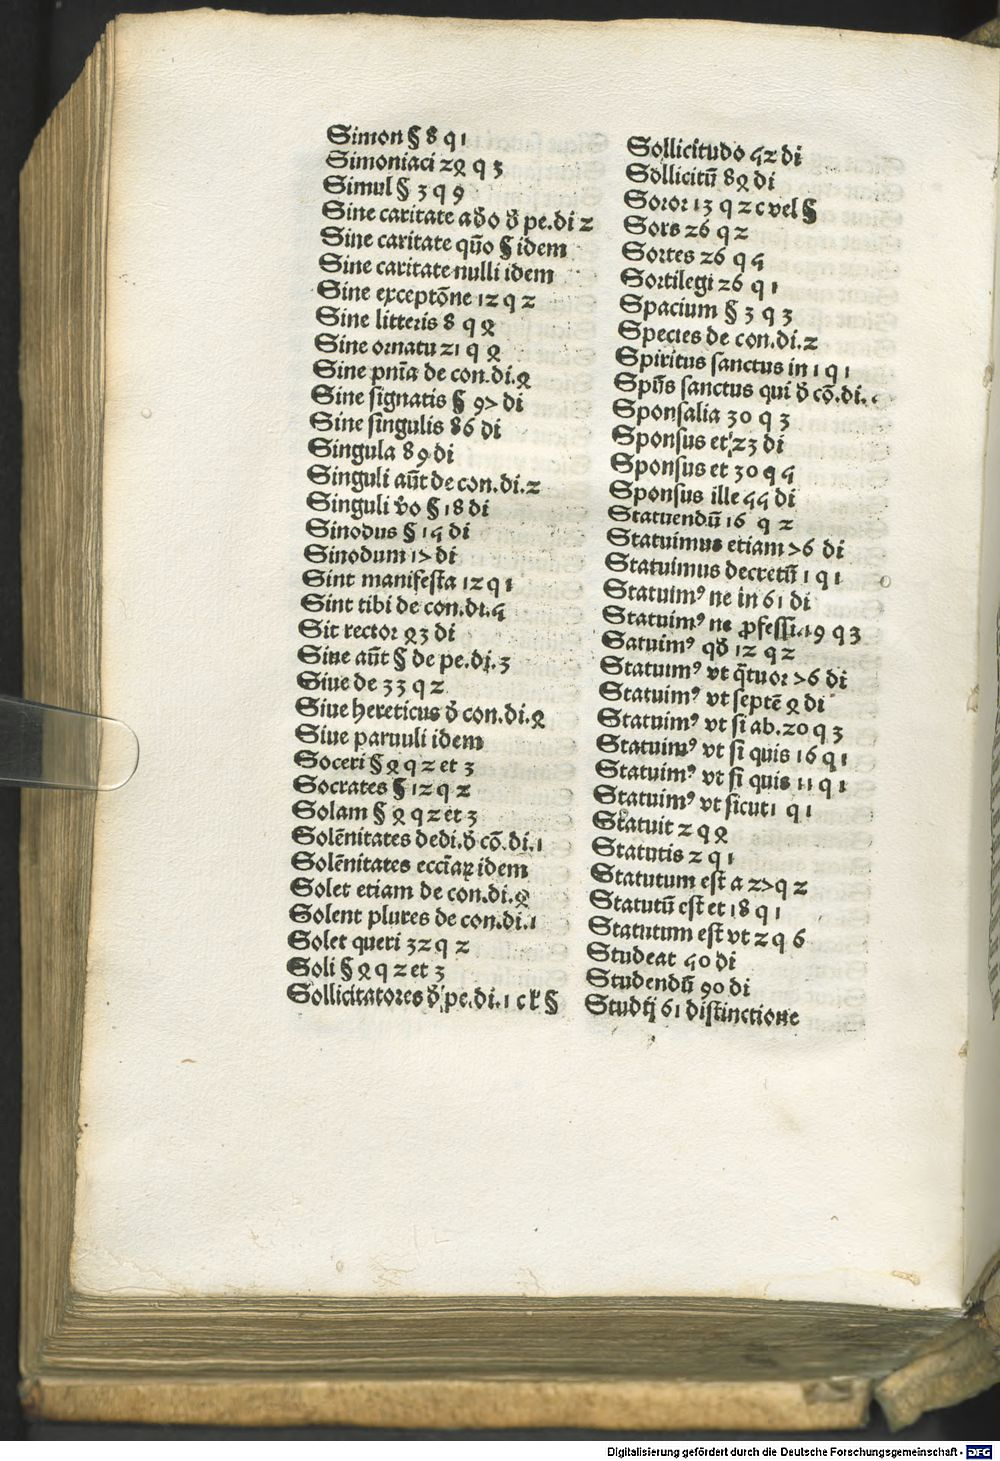 Simon § 8 q 1
Simoniaci 24 q 3
Simul § 3 q 9
Sine caritate ađo đ pe.di 2
Sine caritate qūo § idem
Sine caritate nulli idem
Sine exceptōne 12 q 2
Sine litteris 8 q 4
Sine ornatu 21 q 4
Sine pnīa de con.di.4
Sine signatis § 97 di
Sine singulis 86 di
Singula 89 di
Singuli aūt de con.di.2
Singuli v̄o § 18 di
Sinodus § 15 di
Sinodum 17 di
Sint manifesta 12 q 1
Sint tibi de con.di.5
Sit rector 43 di
Siue aūt § de pe.di.3
Siue de 33 q 2
Siue hereticus đ con.di.4
Siue paruuli idem
Soceri § 4 q 2 et 3
Socrates § 12 q 2
Solam § 4 q 2 et 3
Solēnitates dedi.đ cō.di.1
Solēnitates eccīaꝝ idem
Solet etiam de con.di.4
Solent plures de con.di.1
Solet queri 32 q 2
Soli § 4 q 2 et 3
Sollicitatores đ pe.di.1 c ꝉ §
Sollicitudo 52 di
Sollicitū 84 di
Soror 13 q 2 c vel §
Sors 26 q 2
Sortes 26 q 5
Sortilegi 26 q 1
Spacium § 3 q 3
Species de con.di.2
Spiritus sanctus in 1 q 1
Spūs sanctus qui đ cō.di.
Sponsalia 30 q 3
Sponsus et 23 di
Sponsus et 30 q 5
Sponsus ille 55 di
Statuendū 16 q 2
Statuimus etiam 76 di
Statuimus decretū 1 q 1
Statuimꝰ ne in 61 di
Statuimꝰ ne ꝓfessi.19 q 3
Satuimꝰ qđ 12 q 2
Statuimꝰ vt q̄tuor 76 di
Statuimꝰ vt septē 4 di
Statuimꝰ vt si ab.20 q 3
Statuimꝰ vt si quis 16 q 1
Statuimꝰ vt si quis 11 q 1
Statuimꝰ vt sicut 1 q 1
Statuit 2 q 4
Statutis 2 q 1
Statutum est a 27 q 2
Statutū est et 18 q 1
Statutum est vt 2 q 6
Studeat 50 di
Studendū 90 di
Studij 61 distinctione
Digitalisierung gefördert durch die Deutsche Forschungsgemeinschaft - DFG